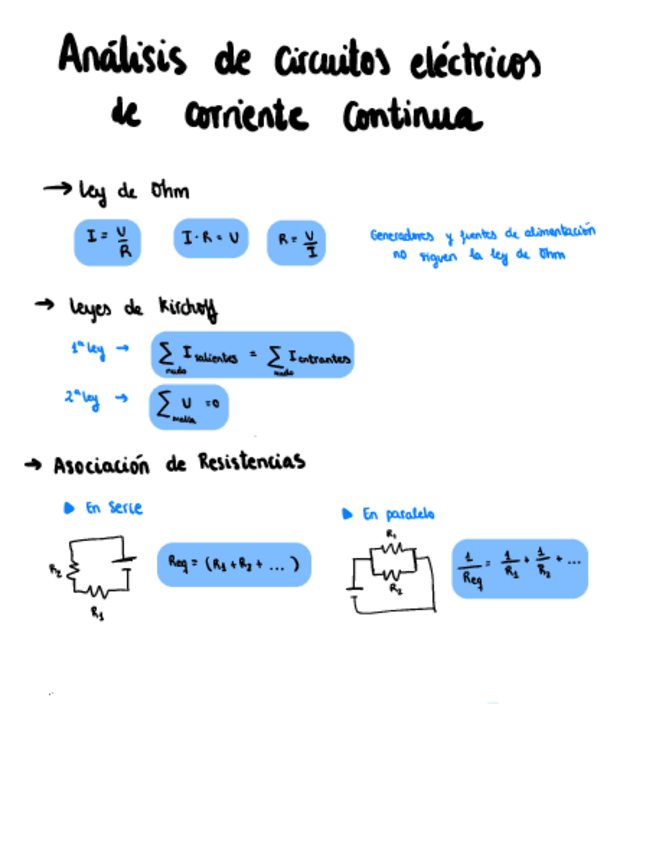 Análisis de circuitos eléctricos
de corriente continua
→ Ley de Ohm
I = U/R
I · R = U
R = U/I
Generadores y fuentes de alimentación
no siguen la ley de Ohm
→ Leyes de Kirchoff
1ª ley → ∑nudo I salientes = ∑nudo I entrantes
2ª ley → ∑malla U = 0
→ Asociación de Resistencias
▶ En Serie
▶ En paralelo
R2
R1
Req = (R1 + R2 + ... )
R1
R2
1/Req = 1/R1 + 1/R2 + ...